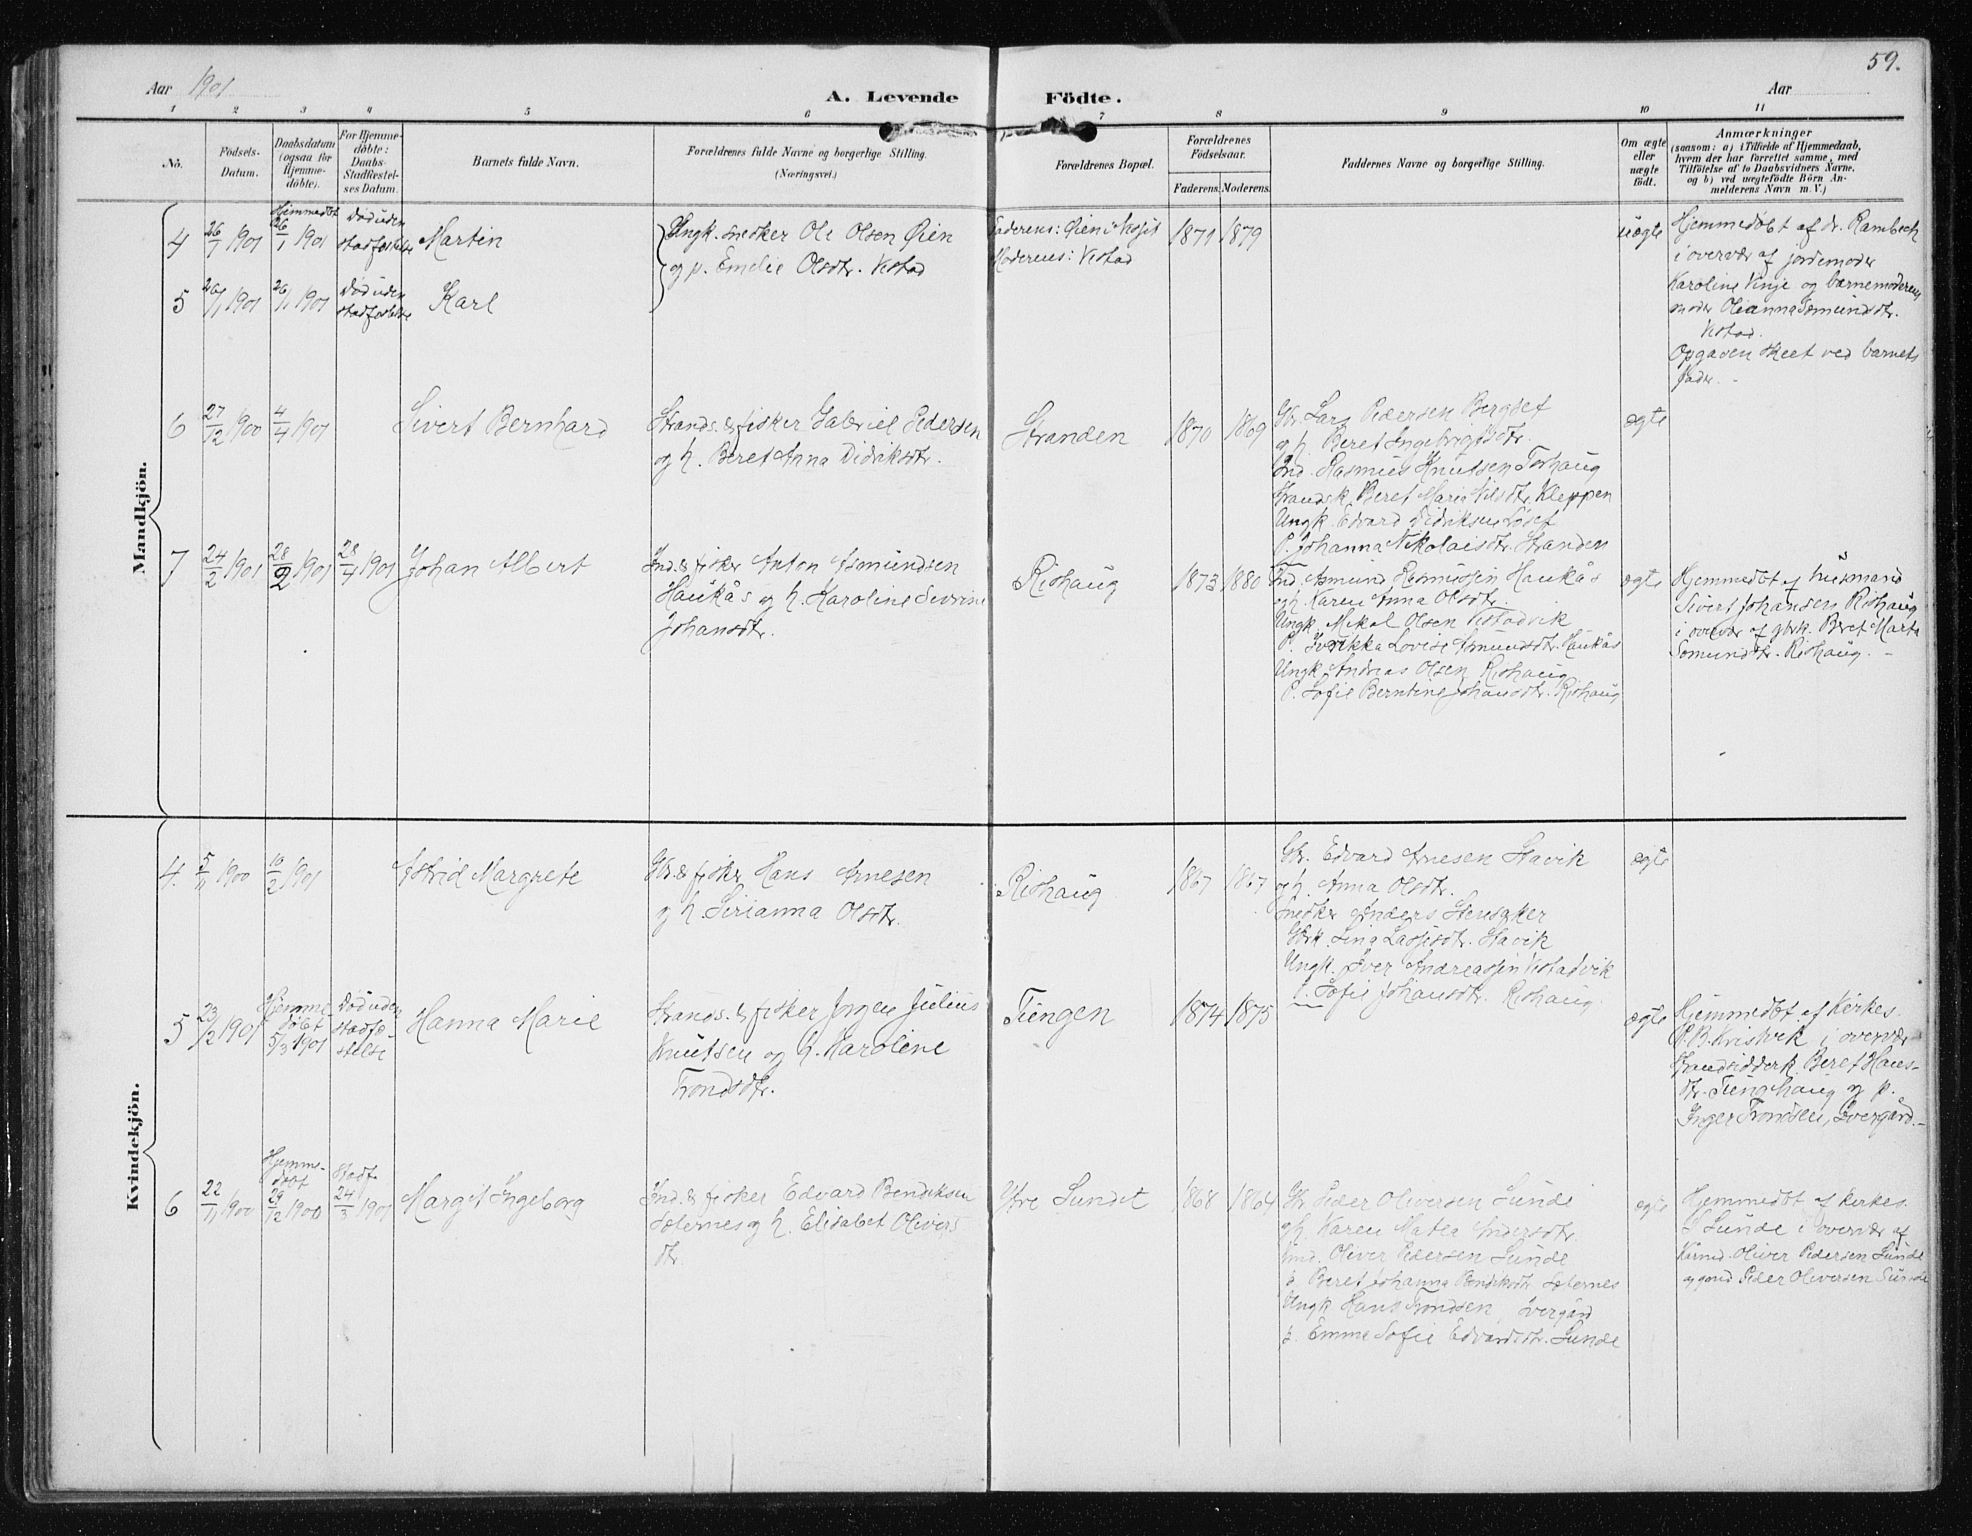 59.
Aar 1901
A. Levende Födte.
Aar
1 2 3 4 5 6 7 8 9 10 11
No.
Födsels-Datum.
Daabsdatum (ogsaa for Hjemmedöbte).
For Hjemmedöbte: Daabs-Stadfæstelses Datum.
Barnets fulde Navn.
Forældrenes fulde Navne og borgerlige Stilling. (Næringsvei.)
Forældrenes Bopæl.
Forældrenes Födselsaar.
Faderens. Moderens.
Faddernes Navne og borgerlige Stilling.
Om ægte eller uægte födt.
Anmærkninger
(saasom: a) i Tilfælde af Hjemmedaab, hvem der har forrettet samme, med Tilföielse af to Daabsvidners Navne, og b) ved uægtefödte Börn Anmelderens Navn m. V.)
Mandkjön.
4 26/1 1901 Hjemmedöbt 26/1 1901 Död uden stadfæstelse
Martin
Ungk. snedker Ole Olsen Øien
og p. Emelie Olsdtr. Vestad
Faderens: Øien i
Moderens: Vestad
1871 1879
uægte
Hjemmedöbt af dr. Rambech
i overvær af jordemoder
Karoline Vinje og barnemoderens
moder Oleanna Somundsdtr.
Vestad.
Opgaven skeet ved barnets
fader. -
5 26/1 1901 26/1 1901 Död uden stadfæstelse
Karl
6 27/12 1900 4/4 1901
Sivert Bernhard
Strands. & fisker Gabriel Pedersen
og h. Beret Anna Didriksdtr.
Stranden
1870 1869
Gbr. Lars Pedersen Bergset
og h. Beret Ingebrigtsdtr.
Ind. Rasmus Knutsen Torhaug
Strandsk. Beret Marie Nilsdtr. Kleppen
Ungk. Edvard Didriksen Løset
P. Johanna Nikolaisdtr. Stranden
ægte
7 24/2 1901 28/2 1901 28/4 1901
Johan Albert
Ind. & fisker Anton Asmundsen
Haukås og h. Karoline Sivrine
Johansdtr.
Rishaug
1873 1880
Ind. Asmund Rasmussen Haukås
og h. Karen Anna Olsdtr.
Ungk. Mikal Olsen Vestadvik
P. Lovise Asmundsdtr. Haukås
Ungk. Andreas Olsen Rishaug
P. Sofie Berntine Johansdtr. Rishaug
ægte
Hjemmedöbt af husmand
Sivert Johansen Rishaug
i overvær af gbrk. Beret Marta
Somundsdtr. Rishaug. -
Kvindekjön.
4. 5/11 1900 10/2 1901
Astrid Margrete
Gbr. & fisker Hans Arnesen
og h. Serianna Olsdtr.
Rishaug
1867 1867
Gbr. Edvard Arnesen Stavik
og h. Anna Olsdtr.
Snedker Anders Stensaker
Gbrk. Lina Lassesdtr. Stavik
Ungk. Iver Andreassen Vestadvik
P. Sofie Johansdtr. Rishaug.
ægte
5 23/2 1901 Hjemmedöbt 5/3 1901 Död uden stadfæstelse
Hanna Marie
Strands. & fisker Jørgen Julius
Knutsen og h. Karoline
Trondsdtr.
Tungen
1874 1875
ægte
Hjemmedöbt af Kirkes.
P. B. Kristvik i overvær
Strandsidderk. Beret Hans-
dtr. Tunghaug og p.
Inger Trondsen, Övergård. -
6 22/11 1900 Hjemmedöbt 29/12 1900 Stadf. 24/3 1901
Margit Ingeborg
Ind. & fisker Edvard Bendiksen
Sæternes og h. Elisabet Olivers
dtr.
Ytre Sundet
1868 1864
Gbr. Peder Oliversen Sunde
og h. Karen Matea Andersdtr.
Kirnd. Oliver Pedersen Sunde
p. Beret Johanna Bendiksdtr. Sæternes
Ungk Hans Trondsen, Övergård
p. Emma Sofie Edvardsdtr. Sunde
ægte
Hjemmedöbt af Kirkes.
Sunde i overvær af
Oliver Pedersen Sunde
og gmd. Peder Oliversen Sunde